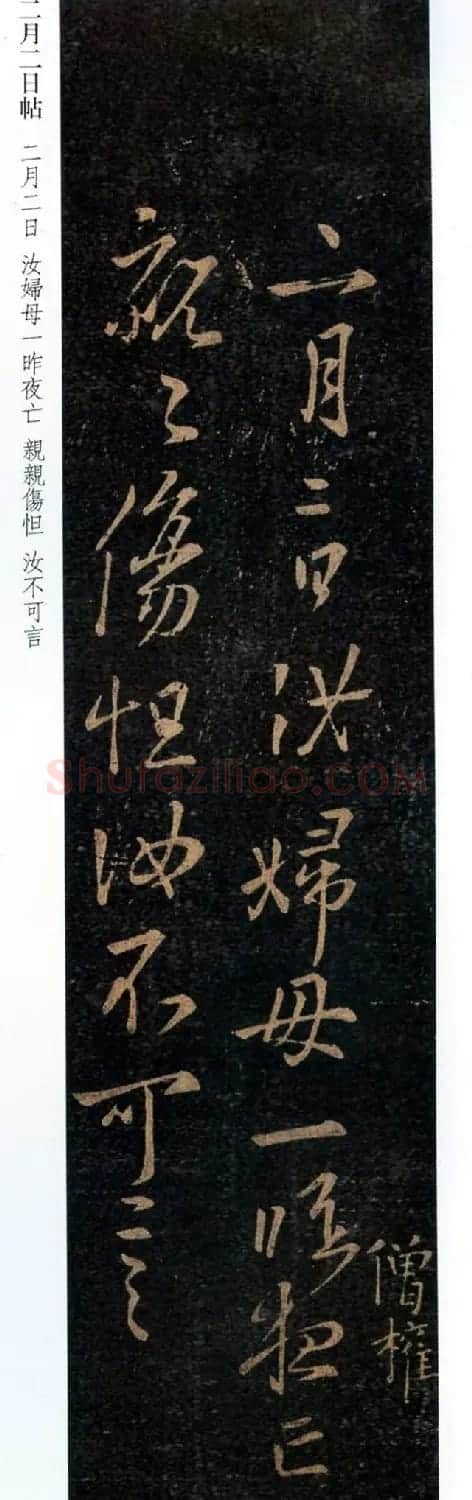 二月二日汝婦母一昨夜亡
僧權
親々傷怛汝不可言
二月二日帖 二月二日 汝婦母一昨夜亡 親親傷怛 汝不可言
Shufaziliao.COM